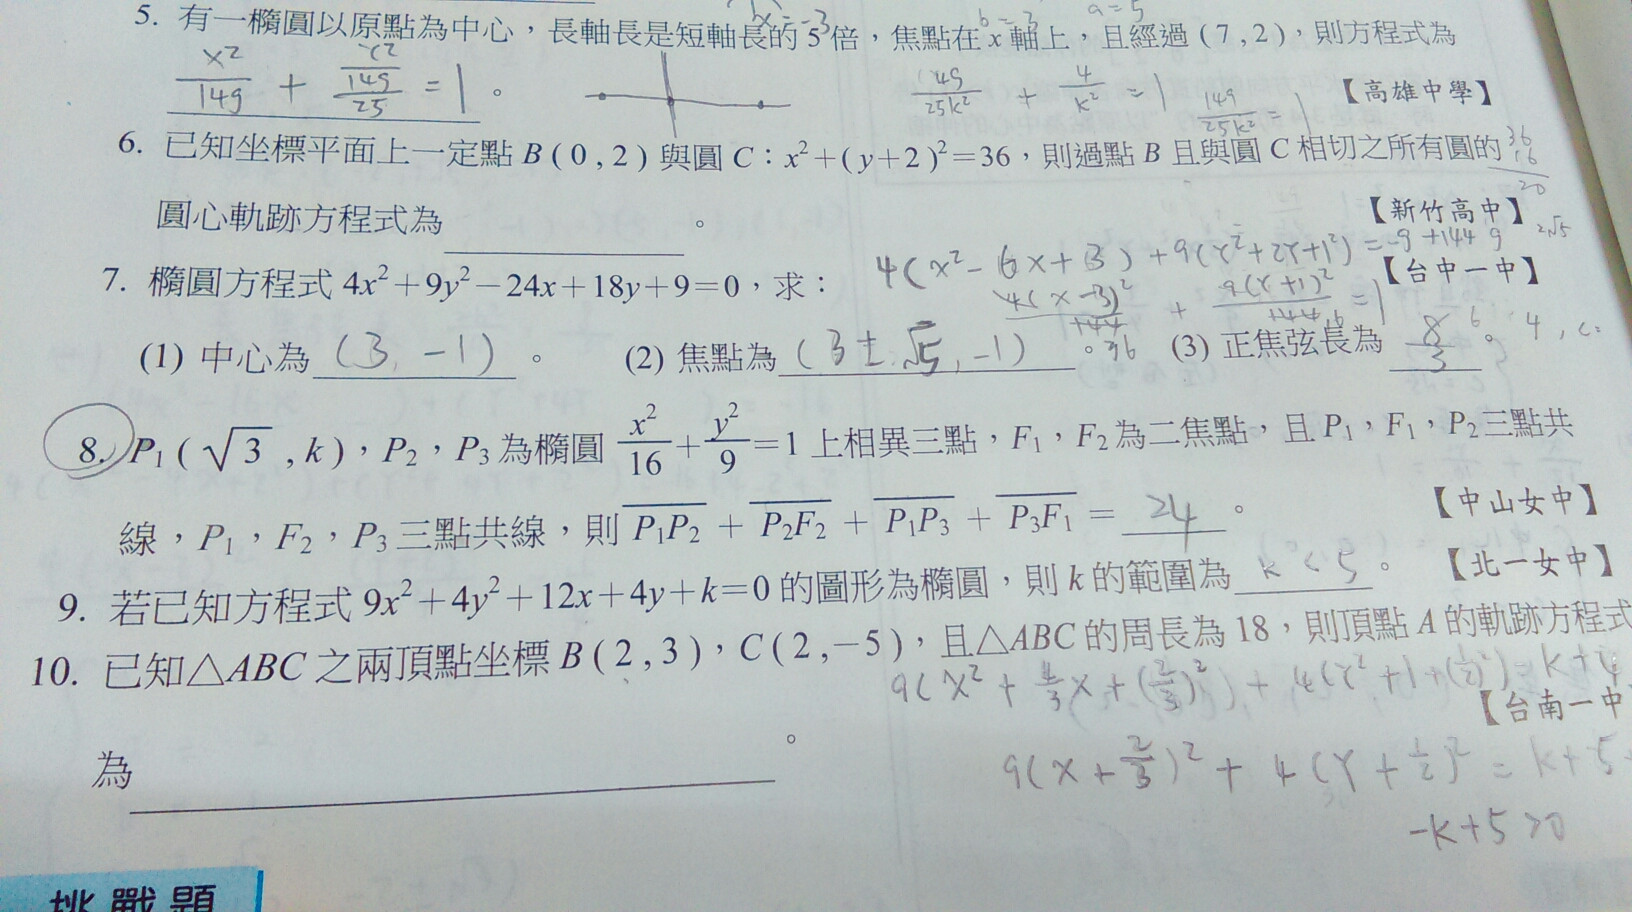 5. 有一橢圓以原點為中心，長軸長是短軸長的 5 倍，焦點在 x 軸上，且經過 (7,2)，則方程式為
x²/149 + y²/(149/25) = 1 。 【高雄中學】
49/25k² + 4/k² = 1 149/25k² = 1
6. 已知坐標平面上一定點 B(0,2) 與圓 C：x²+(y+2)²=36，則過點 B 且與圓 C 相切之所有圓的
圓心軌跡方程式為 。 【新竹高中】
7. 橢圓方程式 4x²+9y²−24x+18y+9=0，求： 【台中一中】
(1) 中心為 (3, −1) 。 (2) 焦點為 (3±√5, −1) 。 (3) 正焦弦長為 8/3 。
8. P₁(√3, k)，P₂，P₃ 為橢圓 x²/16 + y²/9 = 1 上相異三點，F₁，F₂ 為二焦點，且 P₁，F₁，P₂ 三點共
線，P₁，F₂，P₃ 三點共線，則 P₁P₂ + P₂F₂ + P₁P₃ + P₃F₁ = 24 。 【中山女中】
9. 若已知方程式 9x²+4y²+12x+4y+k=0 的圖形為橢圓，則 k 的範圍為 k<5 。 【北一女中】
10. 已知△ABC 之兩頂點坐標 B(2,3)，C(2,−5)，且△ABC 的周長為 18，則頂點 A 的軌跡方程式
【台南一中
為 。
9(x+2/3)² + 4(y+1/2)² = k+5
−k+5>0
挑戰題